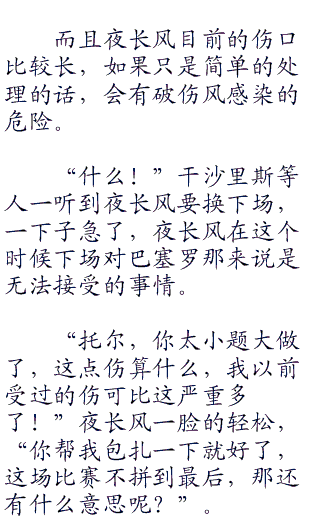 而且夜长风目前的伤口
比较长，如果只是简单的处
理的话，会有破伤风感染的
危险。
“什么！”干沙里斯等
人一听到夜长风要换下场，
一下子急了，夜长风在这个
时候下场对巴塞罗那来说是
无法接受的事情。
“托尔，你太小题大做
了，这点伤算什么，我以前
受过的伤可比这严重多
了！”夜长风一脸的轻松，
“你帮我包扎一下就好了，
这场比赛不拼到最后，那还
有什么意思呢？”。